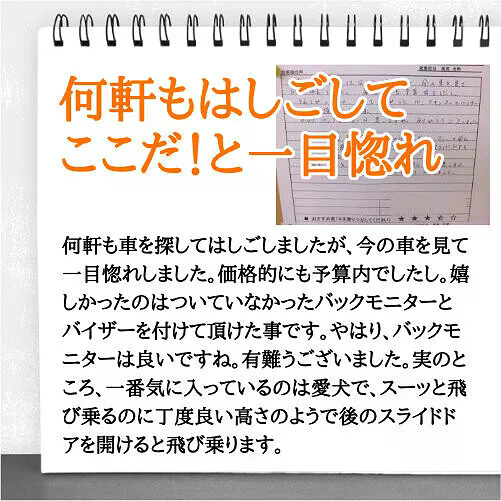 何軒もはしごして
ここだ!と一目惚れ
何軒も車を探してはしごしましたが、今の車を見て
一目惚れしました。価格的にも予算内でしたし。嬉
しかったのはついていなかったバックモニターと
バイザーを付けて頂けた事です。やはり、バックモ
ニターは良いですね。有難うございました。実のと
ころ、一番気に入っているのは愛犬で、スーッと飛
び乗るのに丁度良い高さのようで後のスライドド
アを開けると飛び乗ります。